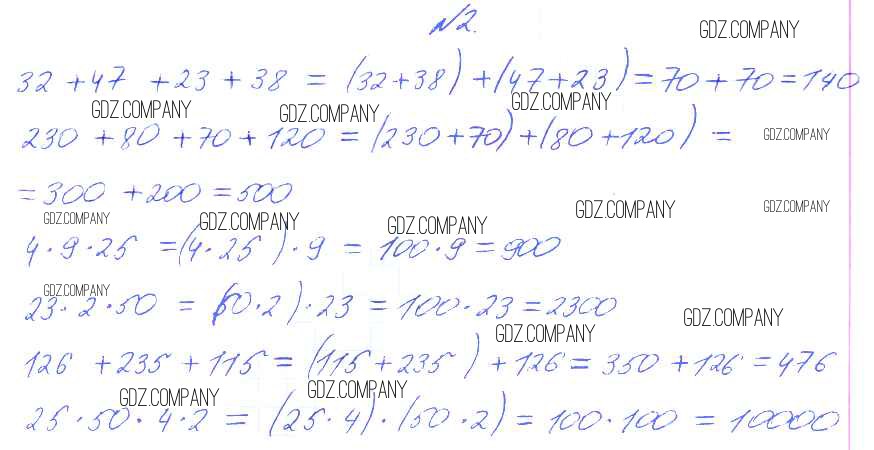 N2. GDZ.COMPANY
32 + 47 + 23 + 38 = (32+38) + (47+23) = 70 + 70 = 140
GDZ.COMPANY GDZ.COMPANY GDZ.COMPANY
230 + 80 + 70 + 120 = (230+70) + (80+120) = GDZ.COMPANY
= 300 + 200 = 500
GDZ.COMPANY GDZ.COMPANY GDZ.COMPANY GDZ.COMPANY GDZ.COMPANY
4 · 9 · 25 = (4 · 25) · 9 = 100 · 9 = 900
GDZ.COMPANY
23 · 2 · 50 = (50 · 2) · 23 = 100 · 23 = 2300
GDZ.COMPANY GDZ.COMPANY
126 + 235 + 115 = (115 + 235) + 126 = 350 + 126 = 476
GDZ.COMPANY GDZ.COMPANY
25 · 50 · 4 · 2 = (25 · 4) · (50 · 2) = 100 · 100 = 10000